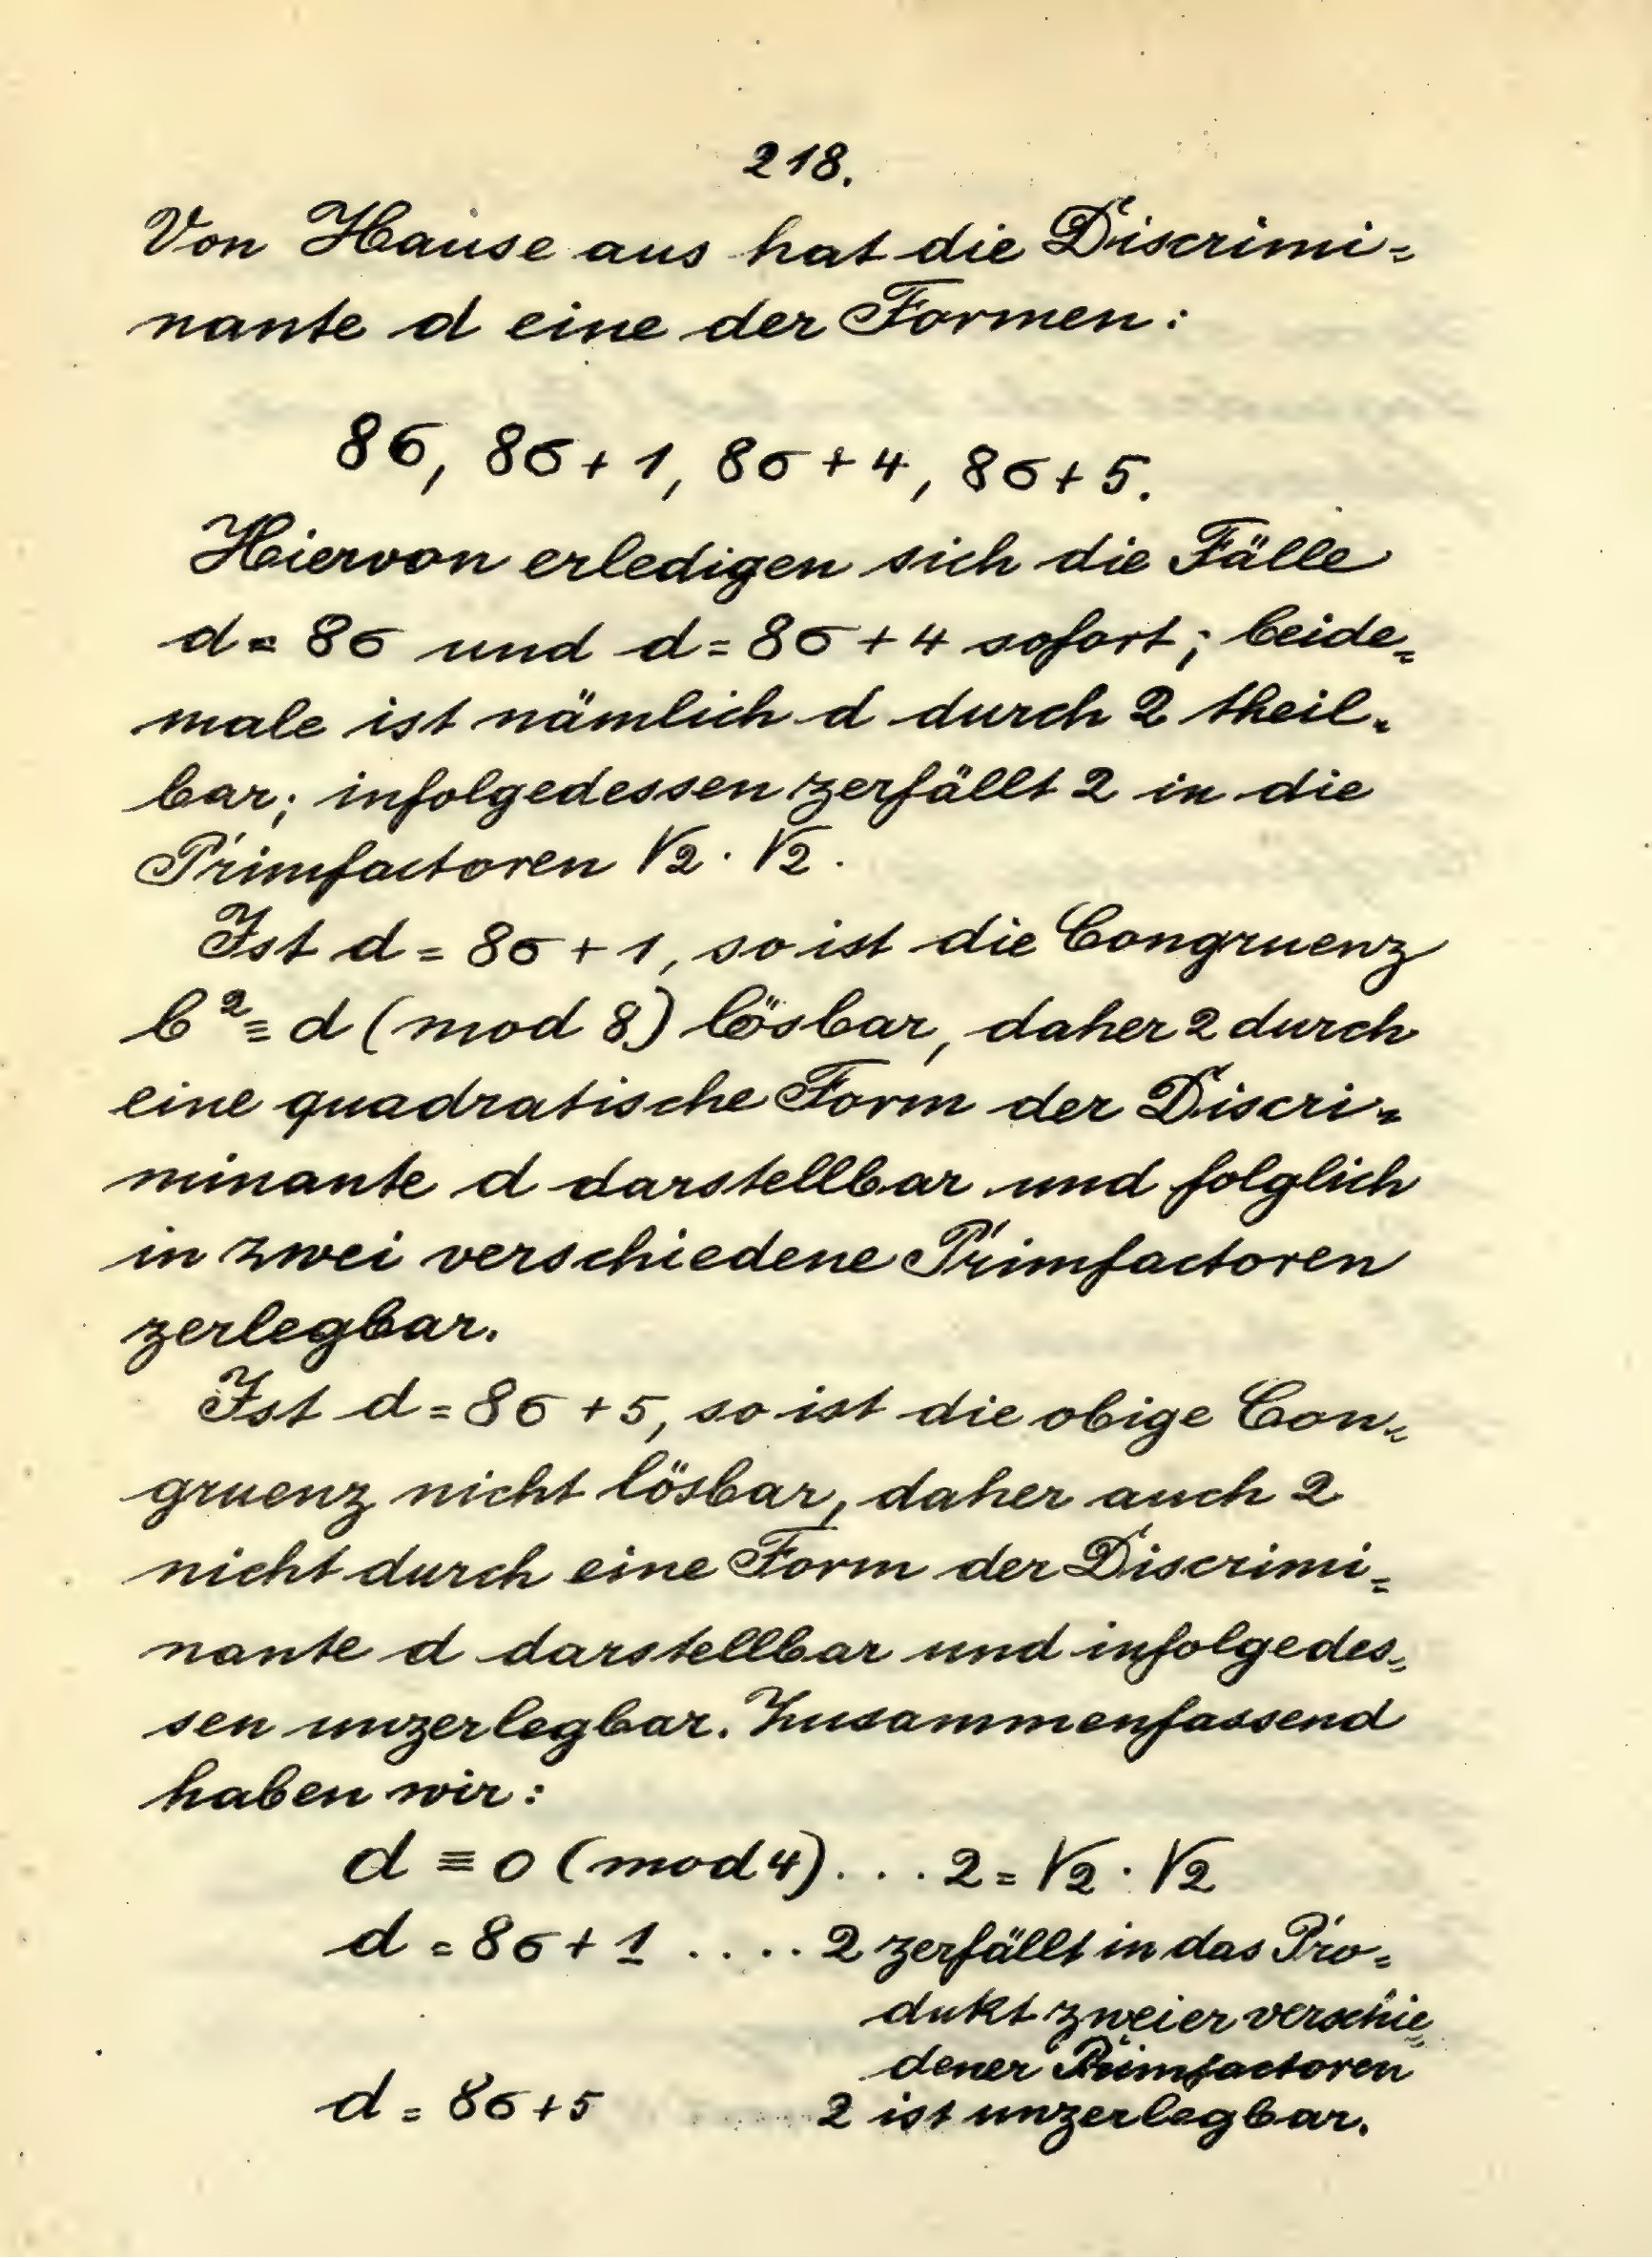 218.
Von Hause aus hat die Discrimi=
nante d eine der Formen:
8σ, 8σ+1, 8σ+4, 8σ+5.
Hiervon erledigen sich die Fälle
d = 8σ und d = 8σ+4 sofort; beide=
male ist nämlich d durch 2 theil=
bar; infolgedessen zerfällt 2 in die
Primfactoren √2 · √2.
Ist d = 8σ+1, so ist die Congruenz
b² ≡ d (mod 8) lösbar, daher 2 durch
eine quadratische Form der Discri=
minante d darstellbar und folglich
in zwei verschiedene Primfactoren
zerlegbar.
Ist d = 8σ+5, so ist die obige Con=
gruenz nicht lösbar, daher auch 2
nicht durch eine Form der Discrimi=
nante d darstellbar und infolgedes=
sen unzerlegbar. Zusammenfassend
haben wir:
d ≡ 0 (mod 4) . . . 2 = √2 · √2
d = 8σ+1 . . . . 2 zerfällt in das Pro=
dukt zweier verschie=
dener Primfactoren
d = 8σ+5 ...... 2 ist unzerlegbar.